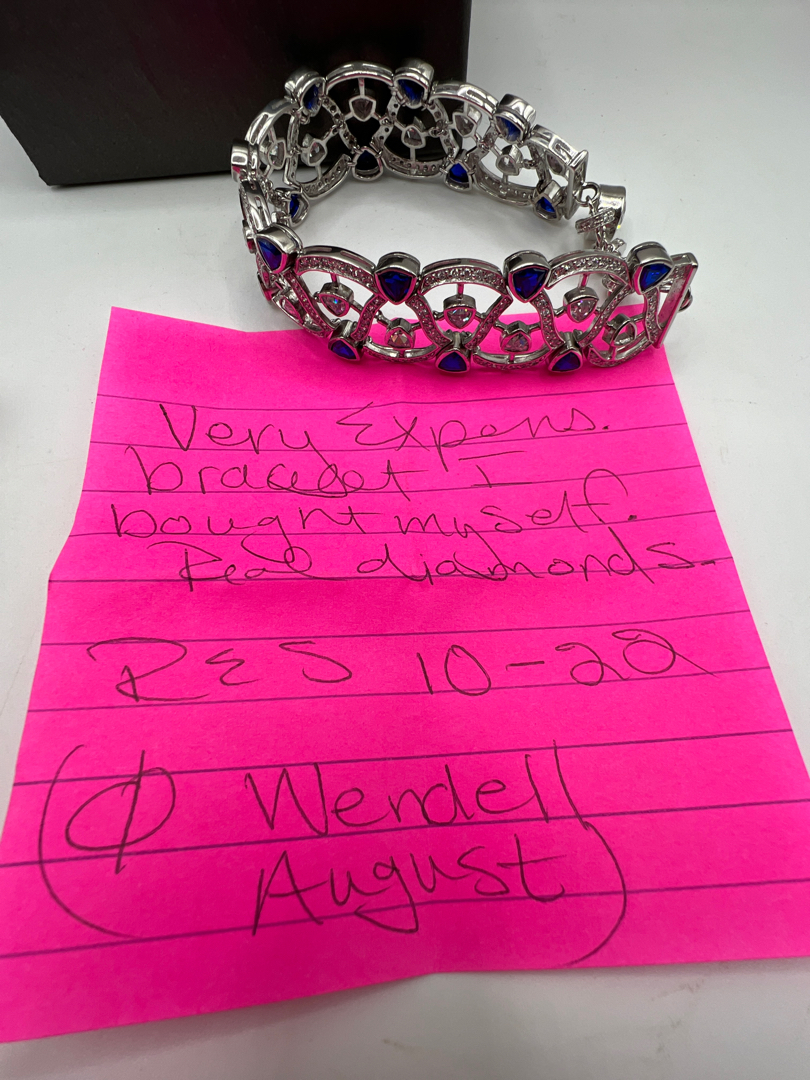 Very Expens.
bracelet I
bought myself.
Real diamonds.
RES 10-22
(∅ Wendell
August)